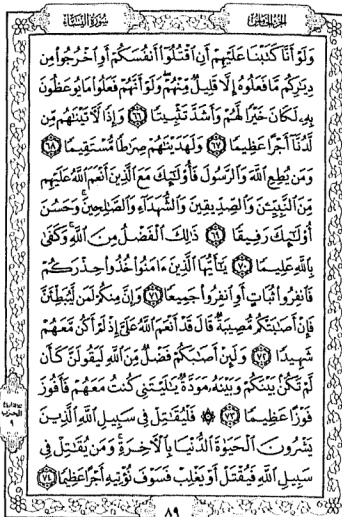 الجزء الخامس
سورة النساء
وَلَوْ أَنَّا كَتَبْنَا عَلَيْهِمْ أَنِ ٱقْتُلُوٓا۟ أَنفُسَكُمْ أَوِ ٱخْرُجُوا۟ مِن
دِيَٰرِكُم مَّا فَعَلُوهُ إِلَّا قَلِيلٌ مِّنْهُمْ وَلَوْ أَنَّهُمْ فَعَلُوا۟ مَا يُوعَظُونَ
بِهِۦ لَكَانَ خَيْرًا لَّهُمْ وَأَشَدَّ تَثْبِيتًا ٦٦ وَإِذًا لَّءَاتَيْنَٰهُم مِّن
لَّدُنَّآ أَجْرًا عَظِيمًا ٦٧ وَلَهَدَيْنَٰهُمْ صِرَٰطًا مُّسْتَقِيمًا ٦٨
وَمَن يُطِعِ ٱللَّهَ وَٱلرَّسُولَ فَأُو۟لَٰٓئِكَ مَعَ ٱلَّذِينَ أَنْعَمَ ٱللَّهُ عَلَيْهِم
مِّنَ ٱلنَّبِيِّۦنَ وَٱلصِّدِّيقِينَ وَٱلشُّهَدَآءِ وَٱلصَّٰلِحِينَ وَحَسُنَ
أُو۟لَٰٓئِكَ رَفِيقًا ٦٩ ذَٰلِكَ ٱلْفَضْلُ مِنَ ٱللَّهِ وَكَفَىٰ
بِٱللَّهِ عَلِيمًا ٧٠ يَٰٓأَيُّهَا ٱلَّذِينَ ءَامَنُوا۟ خُذُوا۟ حِذْرَكُمْ
فَٱنفِرُوا۟ ثُبَاتٍ أَوِ ٱنفِرُوا۟ جَمِيعًا ٧١ وَإِنَّ مِنكُمْ لَمَن لَّيُبَطِّئَنَّ
فَإِنْ أَصَٰبَتْكُم مُّصِيبَةٌ قَالَ قَدْ أَنْعَمَ ٱللَّهُ عَلَىَّ إِذْ لَمْ أَكُن مَّعَهُمْ
شَهِيدًا ٧٢ وَلَئِنْ أَصَٰبَكُمْ فَضْلٌ مِّنَ ٱللَّهِ لَيَقُولَنَّ كَأَن
لَّمْ تَكُنۢ بَيْنَكُمْ وَبَيْنَهُۥ مَوَدَّةٌ يَٰلَيْتَنِى كُنتُ مَعَهُمْ فَأَفُوزَ
فَوْزًا عَظِيمًا ٧٣ ۞ فَلْيُقَٰتِلْ فِى سَبِيلِ ٱللَّهِ ٱلَّذِينَ
يَشْرُونَ ٱلْحَيَوٰةَ ٱلدُّنْيَا بِٱلْءَاخِرَةِ وَمَن يُقَٰتِلْ فِى
سَبِيلِ ٱللَّهِ فَيُقْتَلْ أَوْ يَغْلِبْ فَسَوْفَ نُؤْتِيهِ أَجْرًا عَظِيمًا ٧٤
الحزب
٩
٨٩